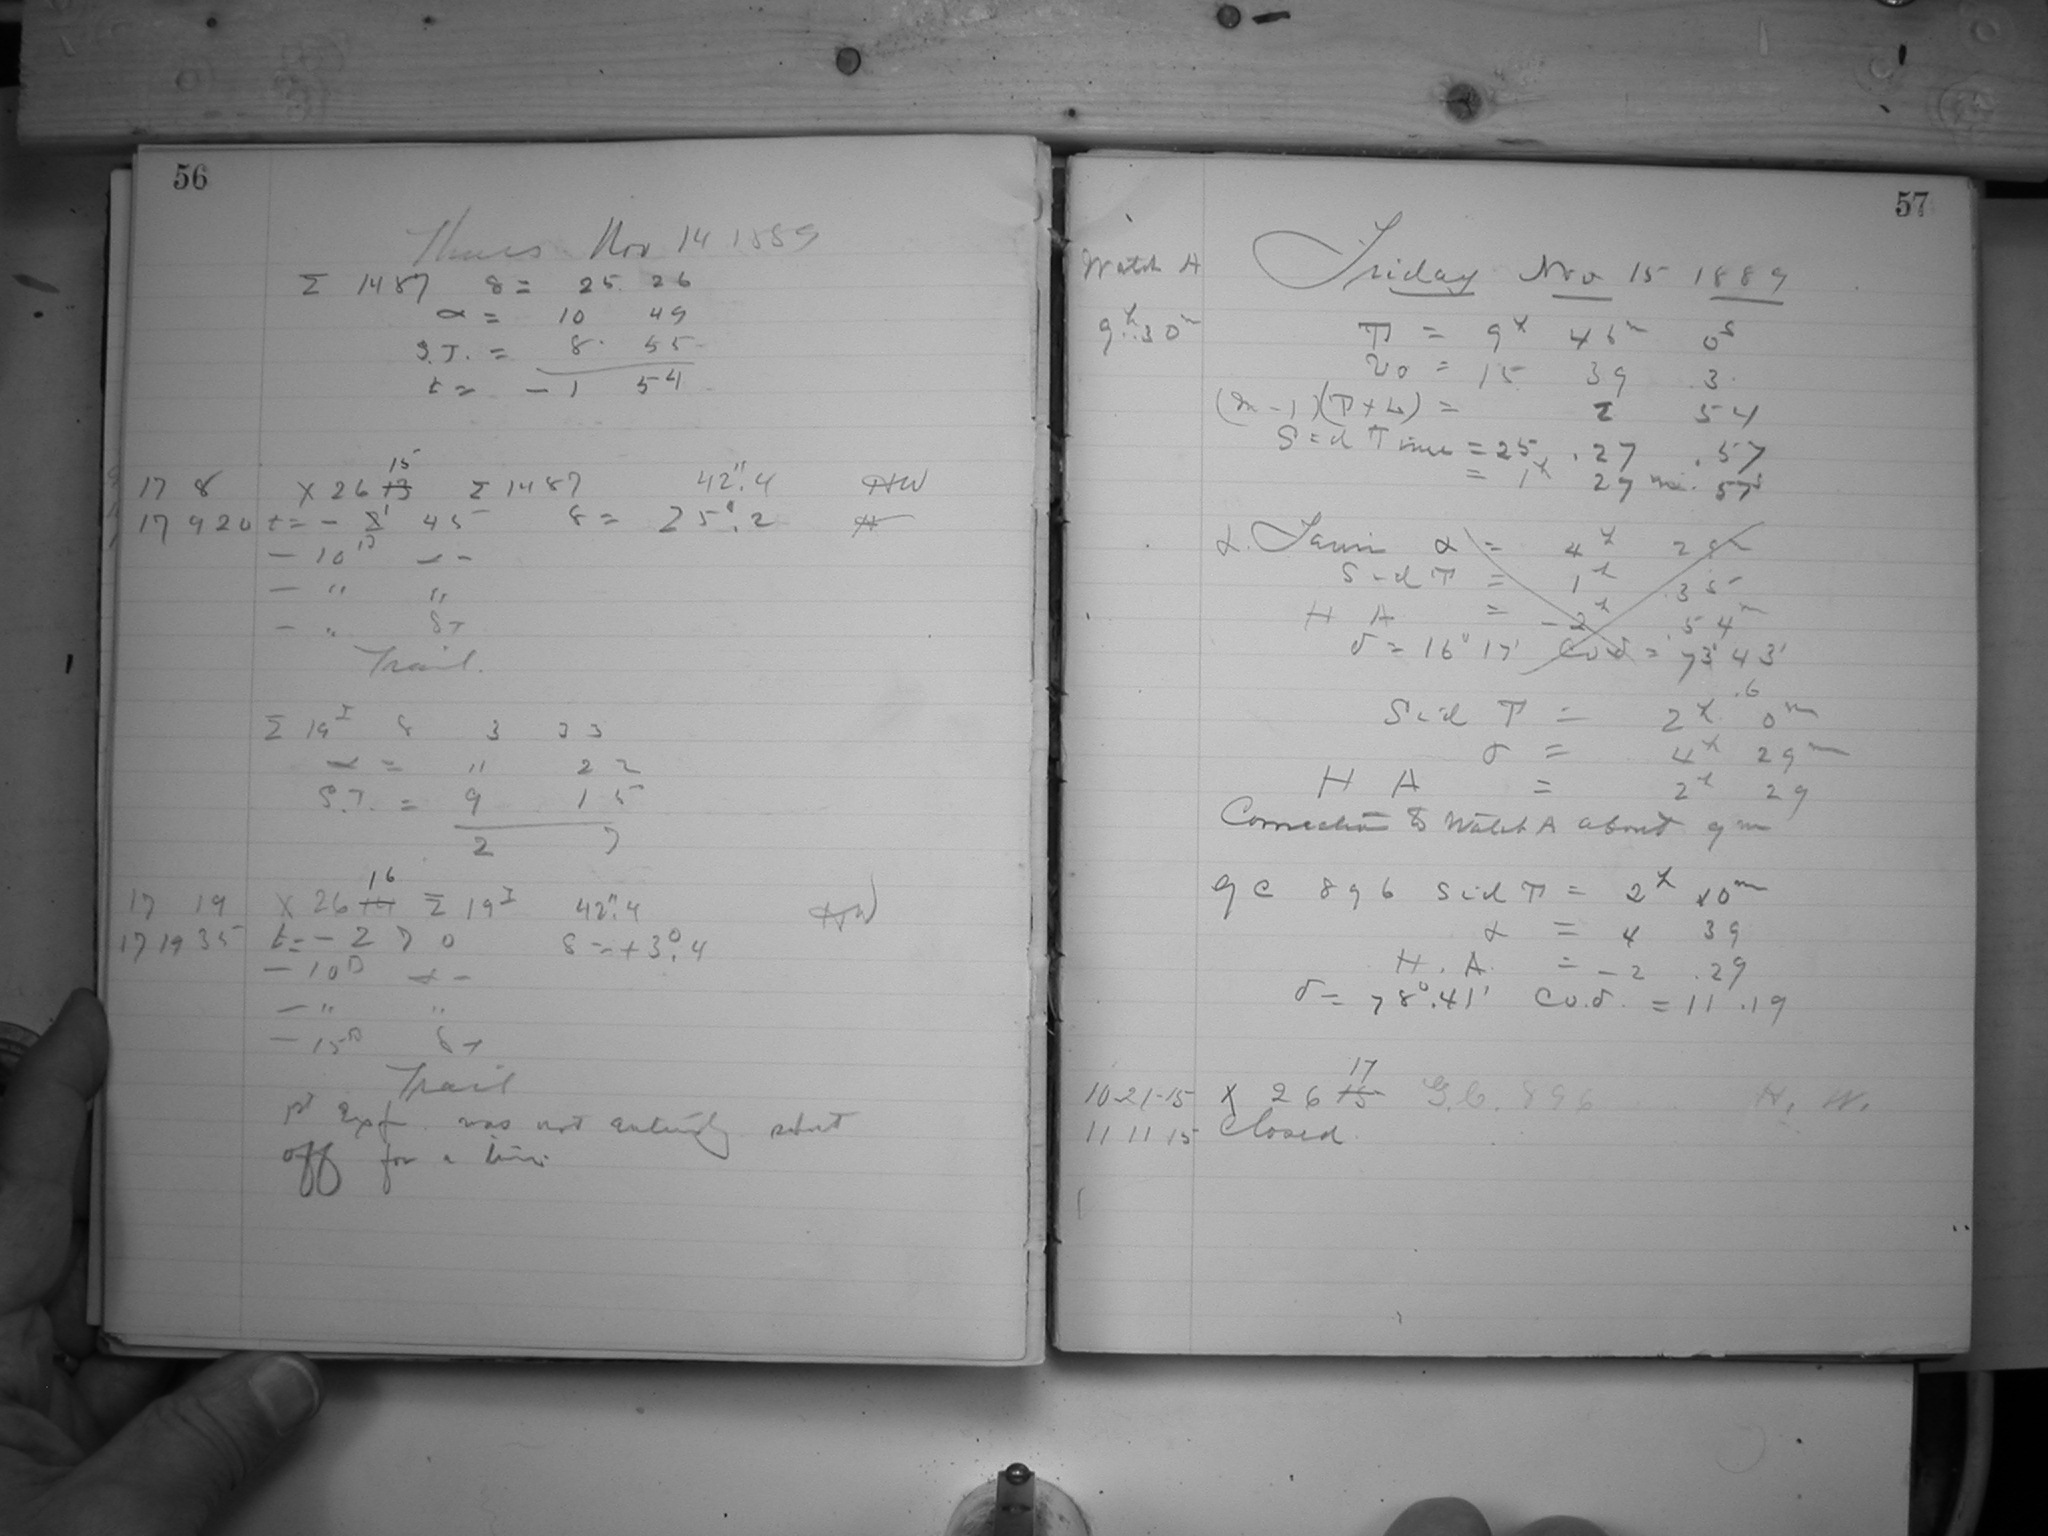 56
Thurs Nov 14 1889
Σ 1487 δ = 25 26
α = 10 49
S.T. = 8. 55
t = - 1 54
17 8 X 26 13 15 Σ 1487 42".4 HW
17 9 20 t = - 45 δ = 25°.2 H
- 10 α -
- " "
- " δ+
Trail.
Σ 19 δ 3 33
α = 11 22
S.T. = 9 15
2 7
17 19 X 26 14 16 Σ 19 42".4 HW
17 19 35 t = - 2 7 0 δ = +3°.4
- 10 α -
- " "
- 15 δ+
Trail
1st Exp. was not entirely shut
off for a time
57
Watch A Friday Nov 15 1889
9h.30m T = 9h 45m 0s
vo = 15 39 3
(m - 1)(T + vo) = 2 54
Sid Time = 25. 27 .57
= 1h 27 m. 57s
α. Tauri α = 4h 29m
Sid T = 1h .35
H A = -2h .54m
δ = 16° 17' Co.δ = 73° 43'
.6
Sid T = 2h 0m
= 4h 29m
H A = 2h 29
Correction to Watch A about 9m
g c 896 Sid T = 2h 10m
α = 4 39
H. A. = -2 .29
δ = 78°.41' Co.δ. = 11.19
10-21-15 X 26 15 17 G.C. 896 H. W.
11 11 15 Closed